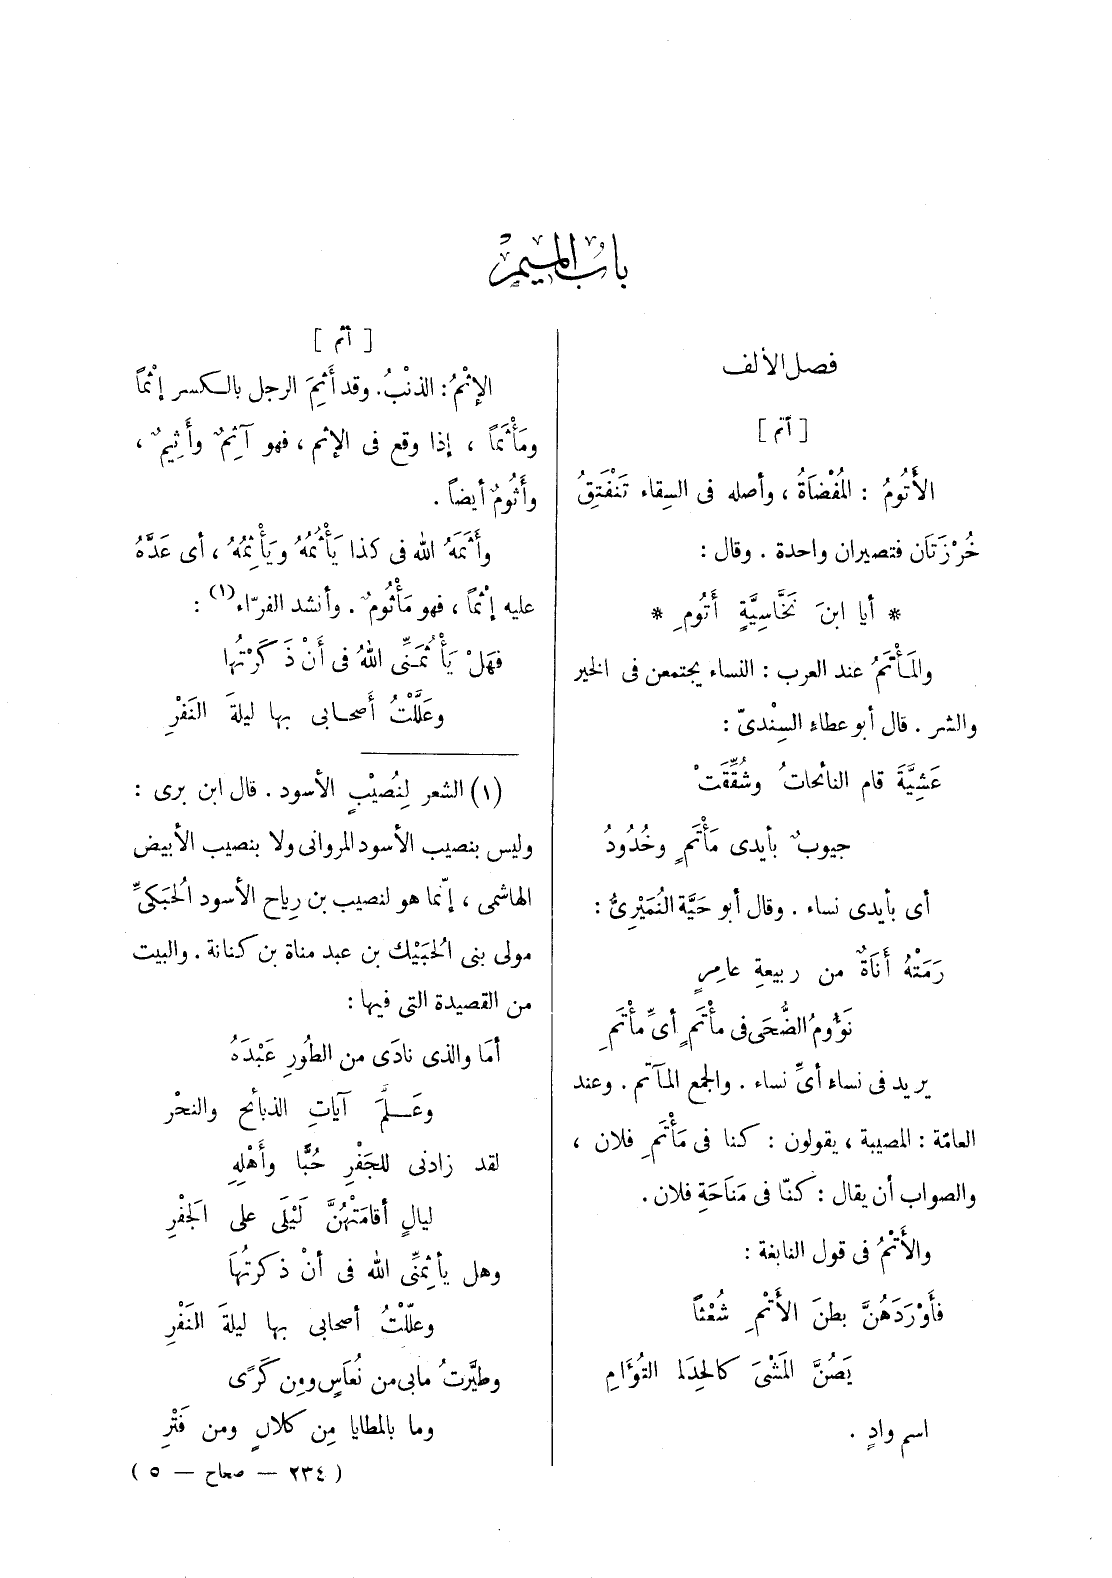 بابُ الميمْ
فصل الألف
[ أتم ]
الأَتُومُ : المُفْضَاةُ ، وأصله فى السِقاء تَنْفَتِقُ
خُرْزَتَان فتصيران واحدة . وقال :
* أيا ابنَ نَخَّاسِيَّةٍ أَتُومِ *
والمَأْتَمُ عند العرب : النساء يجتمعن فى الخير
والشر . قال أبو عطاء السِنْدىّ :
عَشِيَّةَ قام النائحاتُ وشُقِّقَتْ
جيوبٌ بأيدى مَأْتَمٍ وخُدُودُ
أى بأيدى نساء . وقال أبو حَيَّة النُمَيْرِىُّ :
رَمَتْهُ أَنَاةٌ من ربيعةِ عامِرٍ
نَؤُومُ الضُّحَى فى مأْتَمٍ أىِّ مأْتَمِ
يريد فى نساء أىِّ نساء . والجمع المآتم . وعند
العامّة : المصيبة ، يقولون : كنا فى مَأْتَمِ فلان ،
والصواب أن يقال : كنّا فى مَنَاحَةِ فلان .
والأَتْمُ فى قول النابغة :
فأَوْرَدَهُنَّ بطنَ الأَتْمِ شُعْثاً
يَصُنَّ المَشْىَ كالحِدَإِ التُؤَامِ
اسم وادٍ .
[ أثم ]
الإثْمُ : الذنْبُ . وقد أَثِمَ الرجل بالكسر إثْماً
ومَأْثَماً ، إذا وقع فى الإثم ، فهو آثِمٌ وأَثِيمٌ ،
وأَثُومٌ أيضاً .
وأَثَمَهُ الله فى كذا يَأْثُمُهُ ويَأْثِمُهُ ، أى عَدَّهُ
عليه إثْماً ، فهو مَأْثُومٌ . وأنشد الفرّاء (١) :
فهَلْ يَأْثُمَنِّى اللهُ فى أَنْ ذَكَرْتُها
وعَلَّلْتُ أَصحابى بها ليلةَ النَفْرِ
(١) الشعر لِنُصَيْبٍ الأسود . قال ابن برى :
وليس بنصيب الأسود المروانى ولا بنصيب الأبيض
الهاشمى ، إنّما هو لنصيب بن رِياح الأسود الُحبَكىِّ
مولى بنى الُحبَيْك بن عبد مناة بن كنانة . والبيت
من القصيدة التى فيها :
أمَا والذى نادَى من الطُورِ عَبْدَهُ
وعَلَّمَ آياتِ الذبائح والنحْر
لقد زادنى للجَفْرِ حُبًّا وأَهْلِهِ
ليالٍ أقامَتْهُنَّ لَيْلَى على الَجفْرِ
وهل يأثِمَنِّى الله فى أنْ ذكرتُهَا
وعلّلْتُ أصحابى بها ليلةَ النَفْرِ
وطيَّرتُ مابى من نُعَاسٍ ومِن كَرًى
وما بالمطايا مِن كَلالٍ ومن فَتْرِ
( ٢٣٤ — صحاح — ٥ )